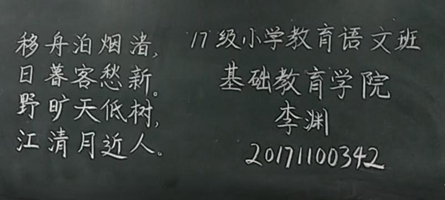 移舟泊烟渚,
日暮客愁新。
野旷天低树,
江清月近人。
17级小学教育语文班
基础教育学院
李渊
20171100342